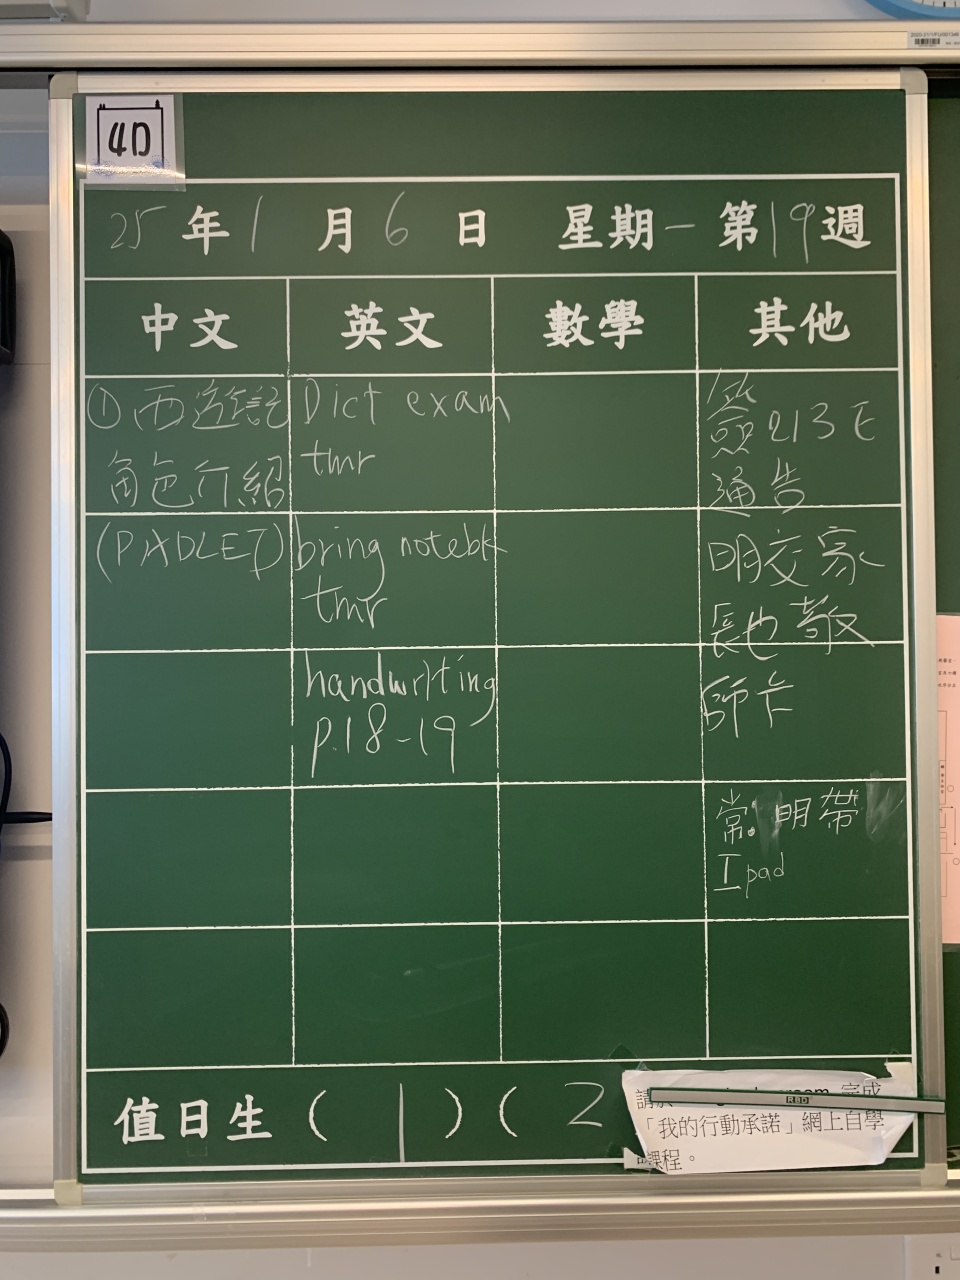 4D
25年1月6日 星期一 第19週
中文 英文 數學 其他
①西遊記
角色介紹
(PADLET)
Dict exam
tmr
bring notebk
tmr
handwriting
p.18-19
簽213E
通告
明交家
長也敬
師卡
常:明帶
Ipad
值日生 ( 1 ) ( 2
完成
「我的行動承諾」網上自學
課程。
RBD